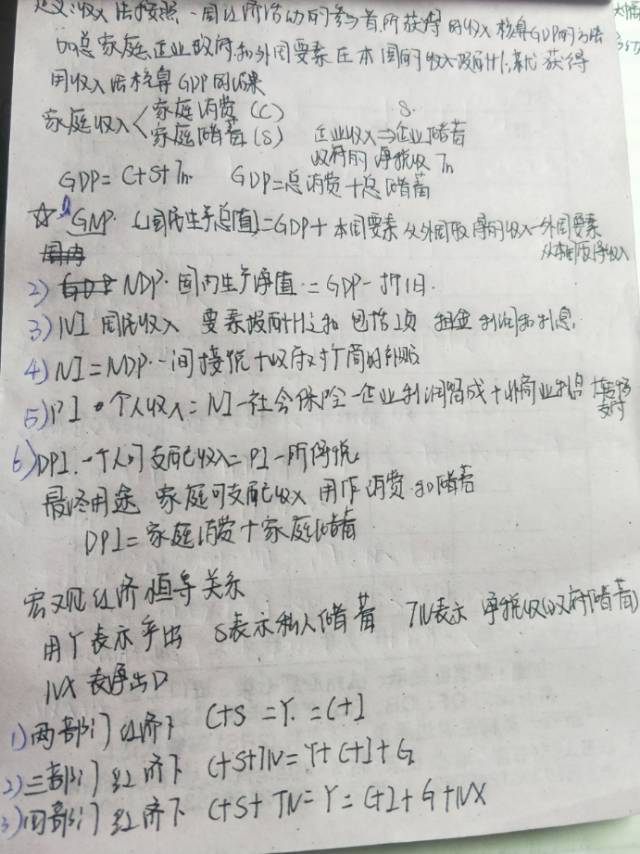 定义:收入法按照一国经济活动的参与者,所获得的收入核算GDP的方法
加总家庭企业政府和外国要素在本国的收入及耐计,就获得
用收入法核算GDP的结果
家庭收入 家庭消费(C) S.
家庭储蓄(S) 企业收入⇒企业储蓄
政府的净税收Tn
GDP=C+S+Tn. GDP=总消费+总储蓄
☆1 GNP.(国民生产总值)=GDP+本国要素从外国取得的收入-外国要素
从本国取得收入
2) NDP.国内生产净值.=GDP-折旧.
3) NI 国民收入 要素报酬之和 包括工资 租金 利润和利息.
4) NI=NDP.-间接税+政府对厂商的补贴
5) PI.个人收入=NI-社会保险-企业利润留成+非商业利息+转移
支付
6) DPI.-个人可支配收入=PI-所得税
最终用途 家庭可支配收入 用作消费.和储蓄
DPI=家庭消费+家庭储蓄
宏观经济恒等关系
用Y表示产出 S表示私人储蓄 TN表示 净税收(政府储蓄)
NX表净出口
1)两部门经济下 C+S=Y.=C+I
2)三部门经济下 C+S+TN=Y+C+I+G
3)四部门经济下 C+S+TN=Y=C+I+G+NX